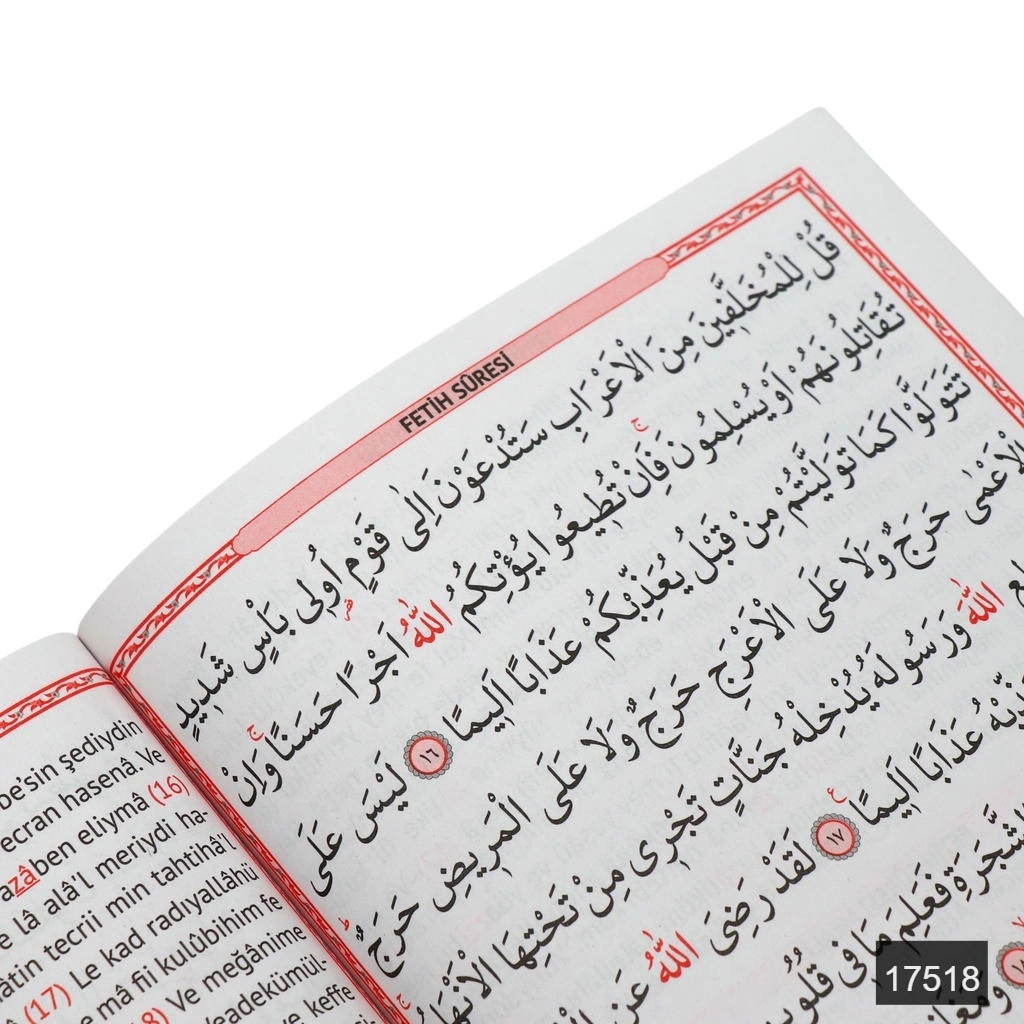 FETİH SÛRESİ
قُلْ لِلْمُخَلَّفٖينَ مِنَ الْاَعْرَابِ سَتُدْعَوْنَ اِلٰى قَوْمٍ اُولٖى بَاْسٍ شَدٖيدٍ
تُقَاتِلُونَهُمْ اَوْ يُسْلِمُونَ فَاِنْ تُطٖيعُوا يُؤْتِكُمُ اللّٰهُ اَجْرًا حَسَنًا وَاِنْ
تَتَوَلَّوْا كَمَا تَوَلَّيْتُمْ مِنْ قَبْلُ يُعَذِّبْكُمْ عَذَابًا اَلٖيمًا ١٦ لَيْسَ عَلَى
الْاَعْمٰى حَرَجٌ وَلَا عَلَى الْاَعْرَجِ حَرَجٌ وَلَا عَلَى الْمَرٖيضِ حَرَجٌ
اللّٰهَ وَرَسُولَهُ يُدْخِلْهُ جَنَّاتٍ تَجْرٖى مِنْ تَحْتِهَا الْاَنْهَا
عَذَابًا اَلٖيمًا ١٧ لَقَدْ رَضِىَ اللّٰهُ عَنِ
الشَّجَرَةِ فَعَلِمَ مَا فٖى قُلُوبِ
be'sin şediydin
ecran hasenâ. Ve
azâben eliymâ (16)
e lâ alâ'l meriydi ha-
âtin tecrii min tahtihâ'l
(17) Le kad radıyallâhü
e mâ fii kulûbihim fe
8) Ve meğânime
eadekümül-
ve keffe
17518